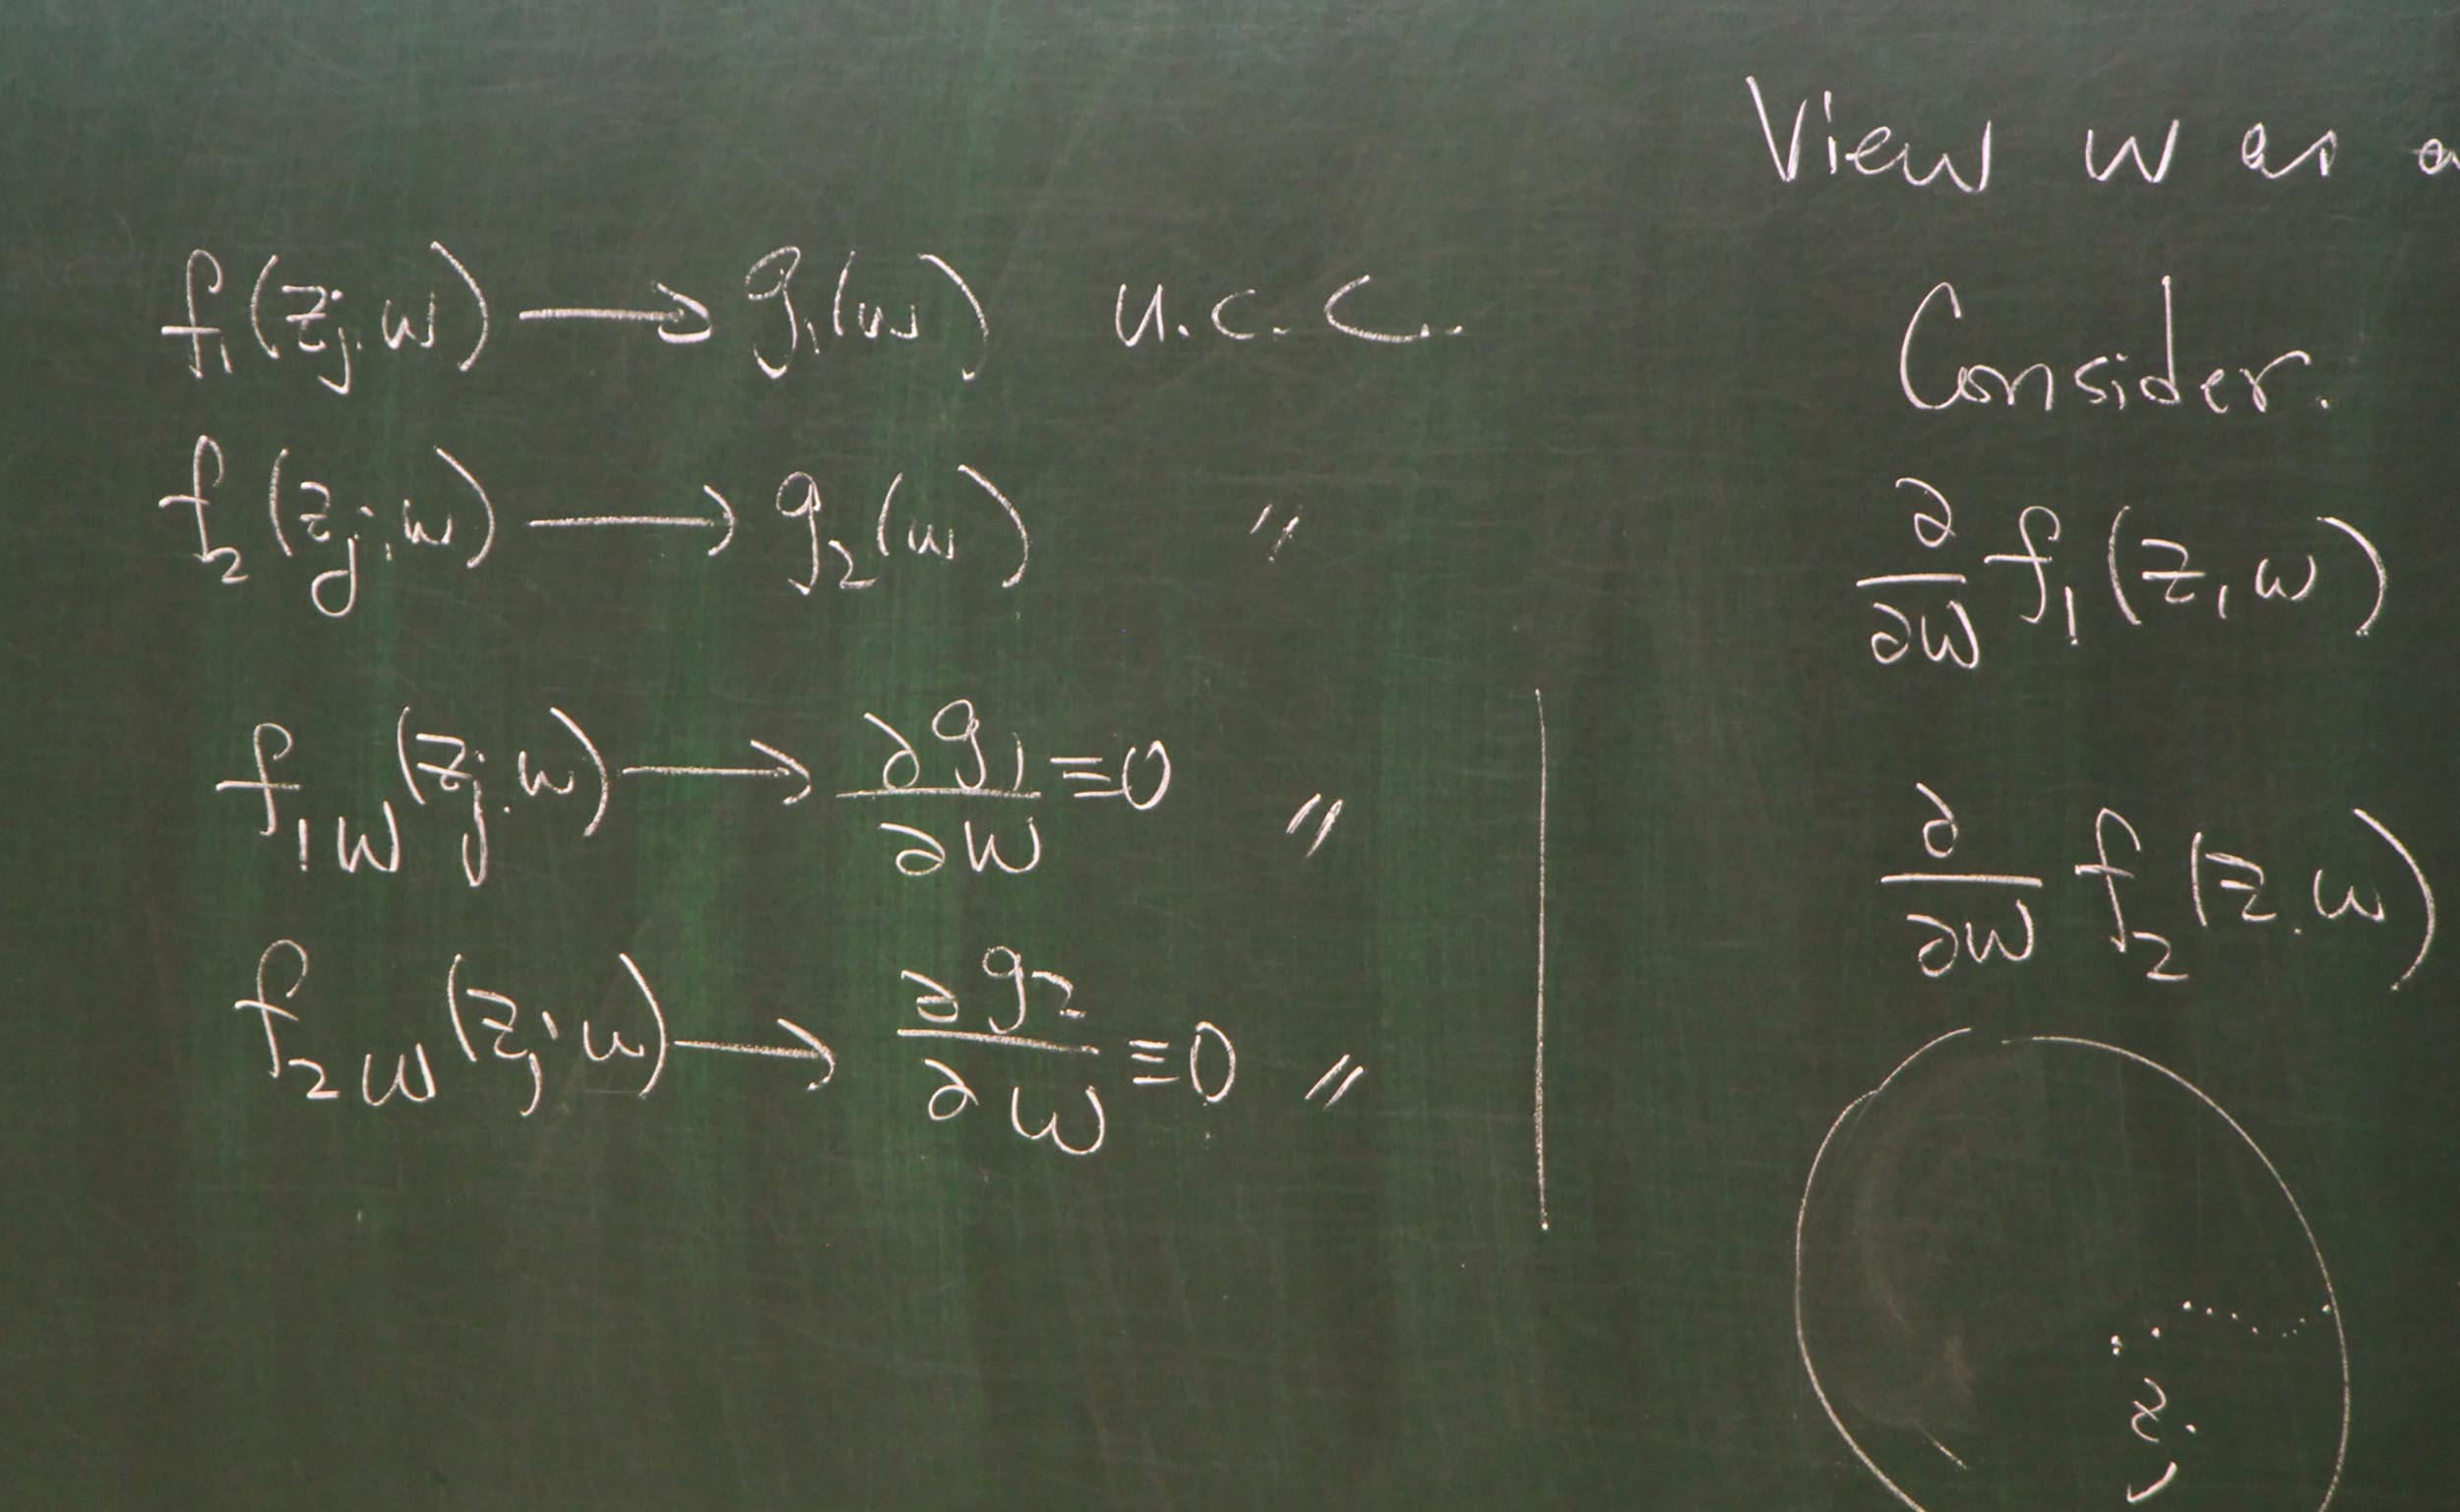 f₁(zⱼ, w) ⟶ g₁(w) u.c.c.
f₂(zⱼ, w) ⟶ g₂(w) "
f₁w(zⱼ, w) ⟶ ∂g₁/∂w ≡ 0 "
f₂w(zⱼ, w) ⟶ ∂g₂/∂w ≡ 0 "
View w as a
Consider.
∂/∂w f₁(z, w)
∂/∂w f₂(z, w)
zⱼ